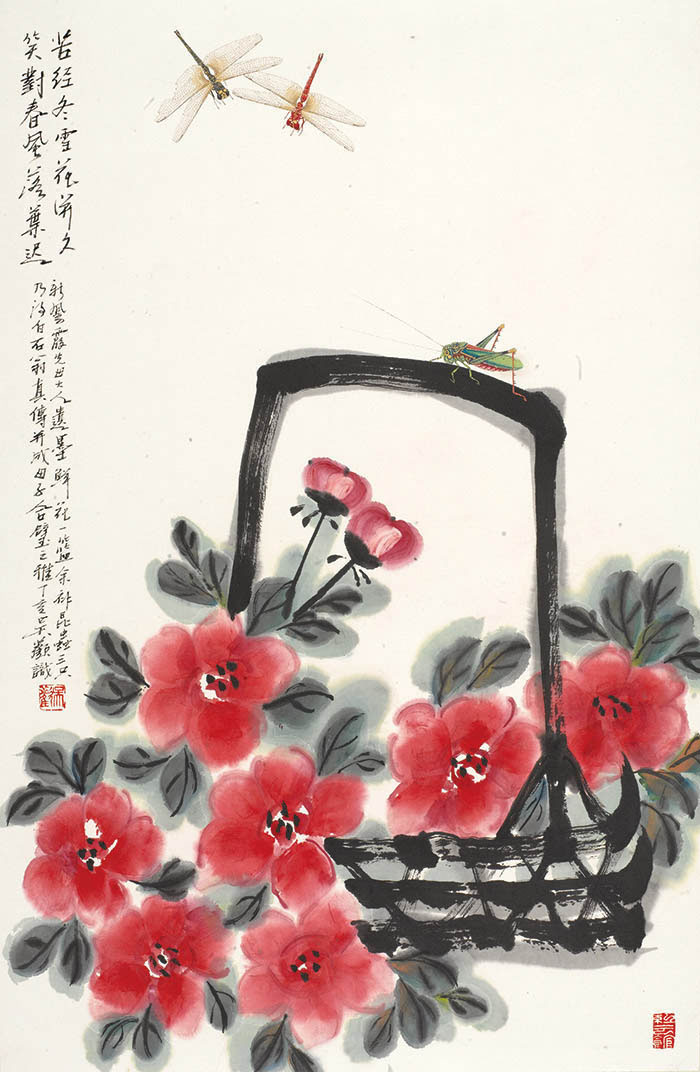 苦经冬雪花開久
笑對春風落葉迟
新鳳霞先母大人遺墨鮮花一籃余補昆虫三只
乃得白石翁真傳并成母子合璧之雅丁亥吳歡識